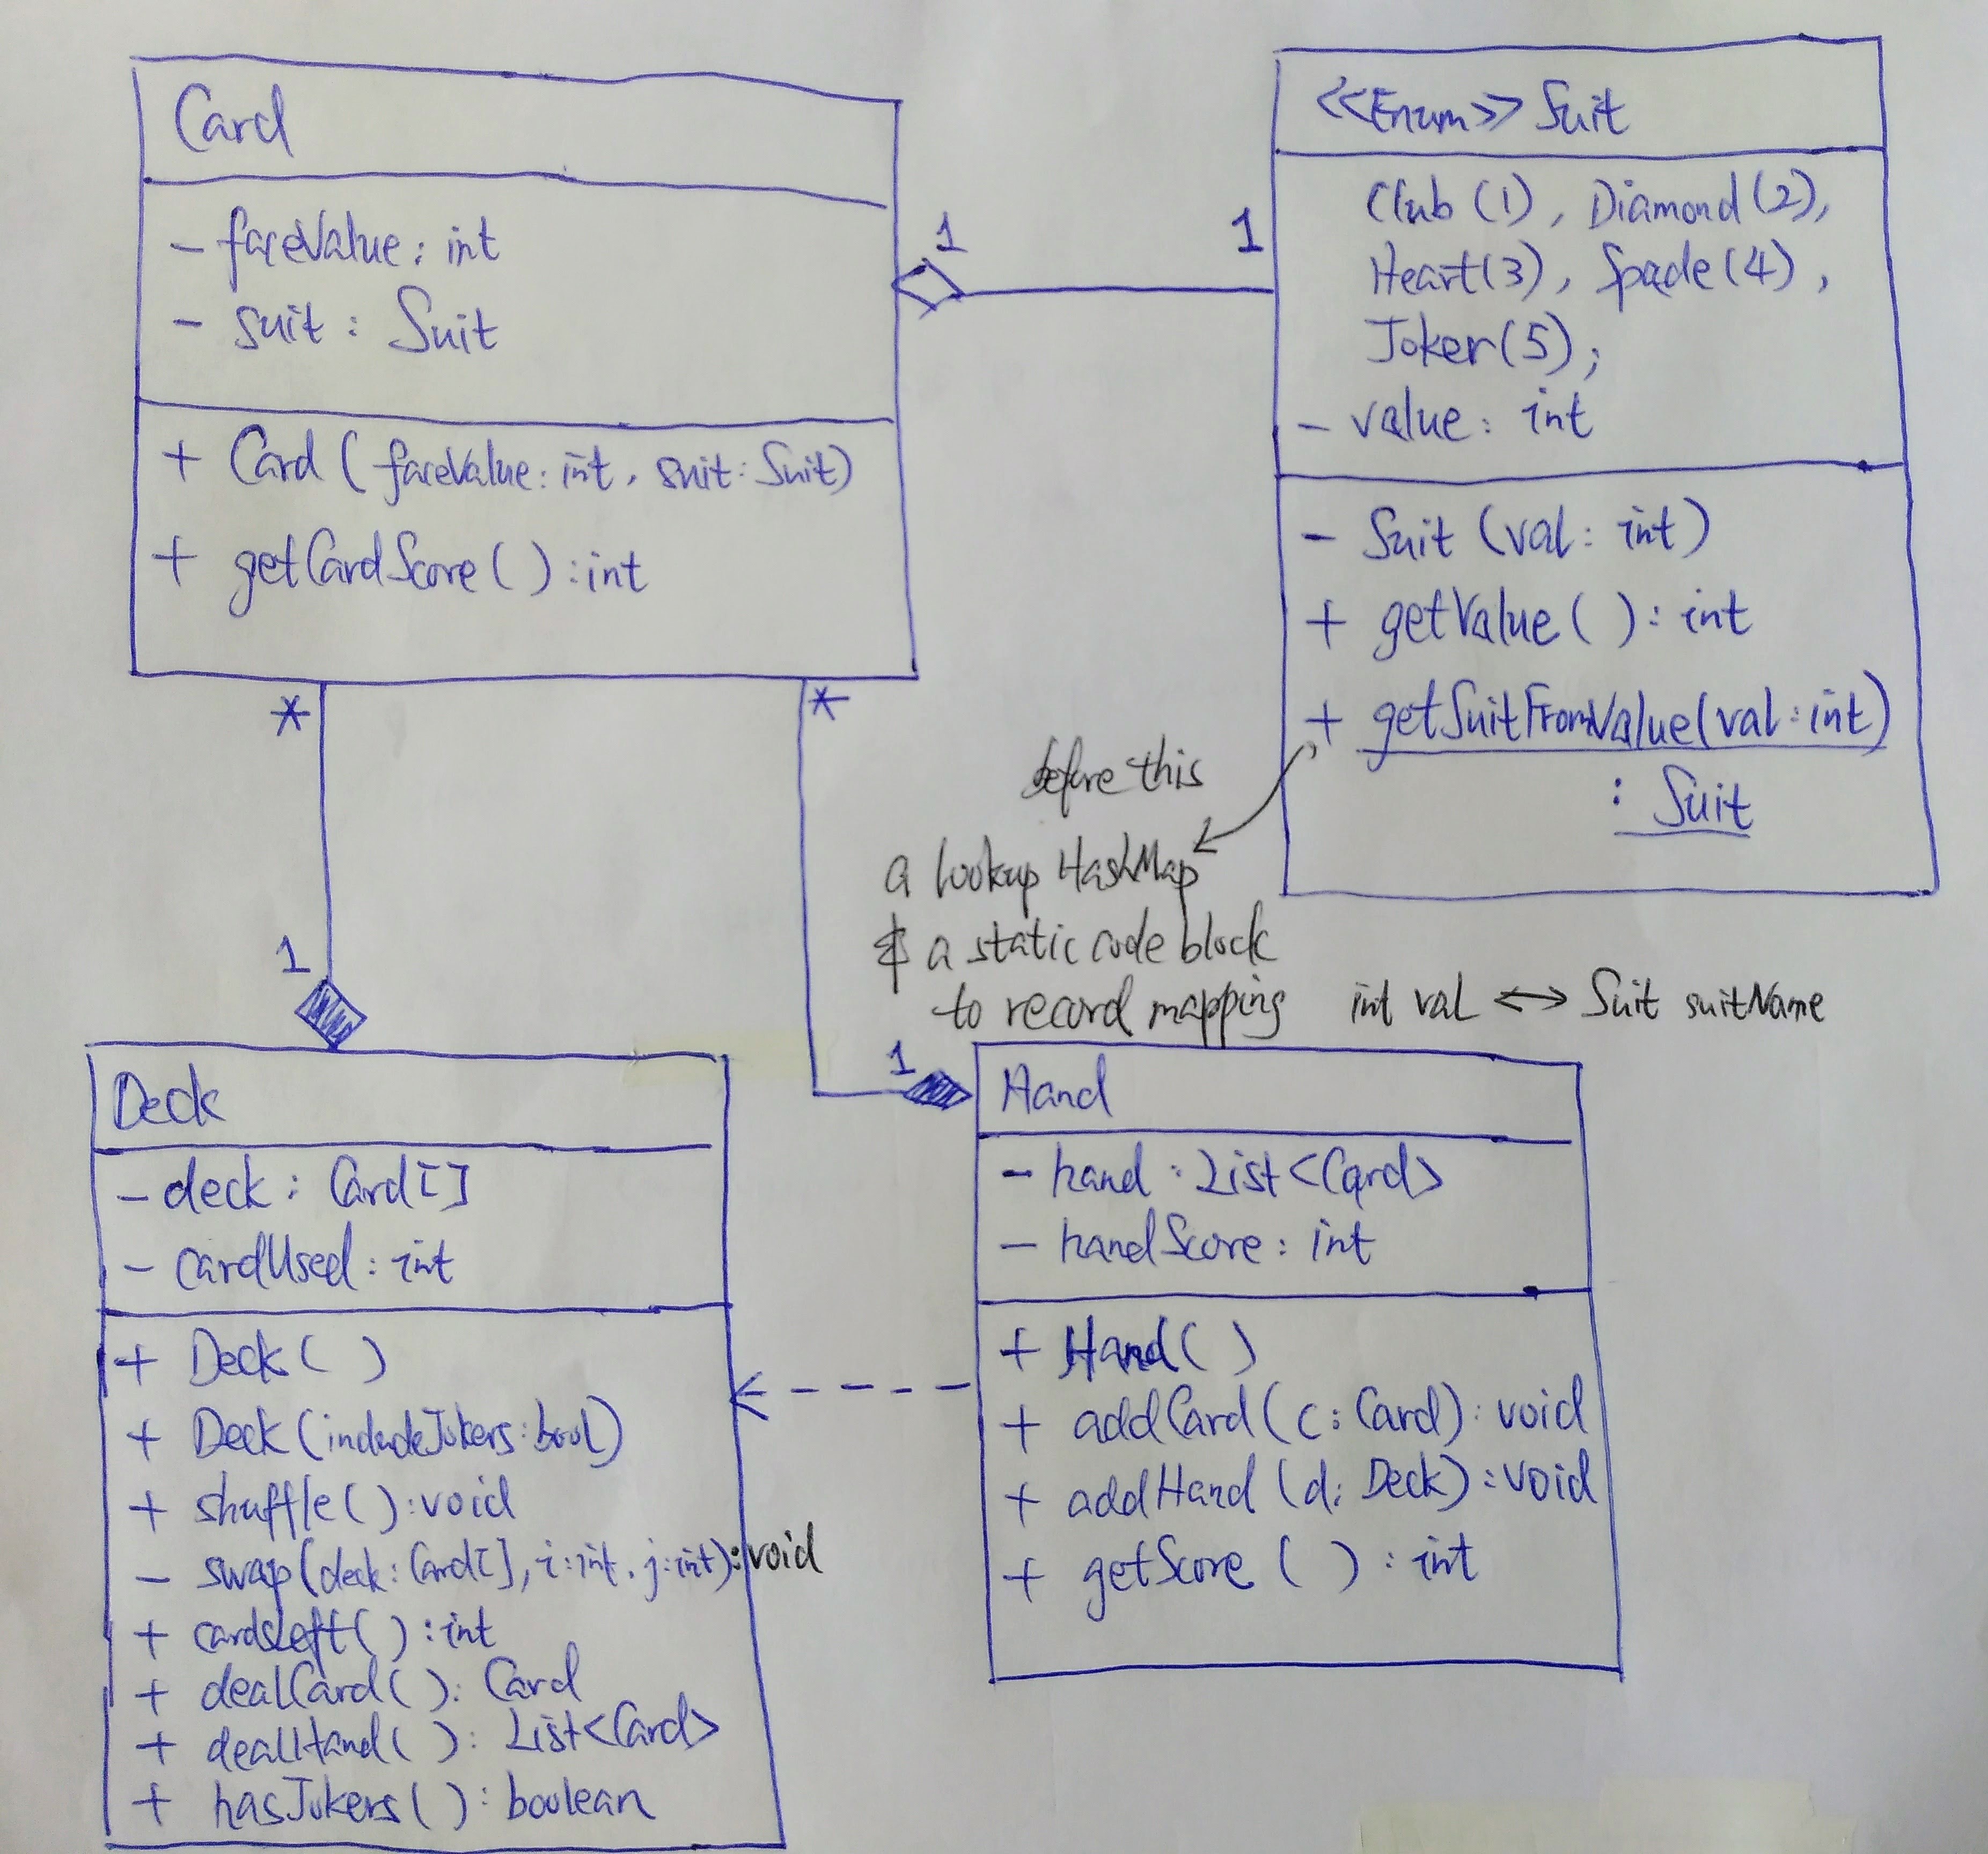 Card
- faceValue : int
- suit : Suit
+ Card ( faceValue : int, suit : Suit)
+ getCardScore ( ) : int
1
1
<<Enum>> Suit
Club (1) , Diamond (2),
Heart (3) , Spade (4) ,
Joker (5) ;
- value : int
- Suit (val : int)
+ getValue ( ) : int
+ getSuitFromValue(val : int)
: Suit
*
*
before this
a lookup HashMap
& a static code block
to record mapping int val <-> Suit suitName
1
1
Deck
- deck : Card[]
- cardUsed : int
+ Deck ( )
+ Deck (includeJokers : bool)
+ shuffle ( ) : void
- swap (deck : Card[], i : int, j : int) : void
+ cardsLeft ( ) : int
+ dealCard ( ) : Card
+ dealHand ( ) : List<Card>
+ hasJokers ( ) : boolean
Hand
- hand : List<Card>
- handScore : int
+ Hand ( )
+ addCard ( c : Card) : void
+ addHand (d : Deck) : void
+ getScore ( ) : int